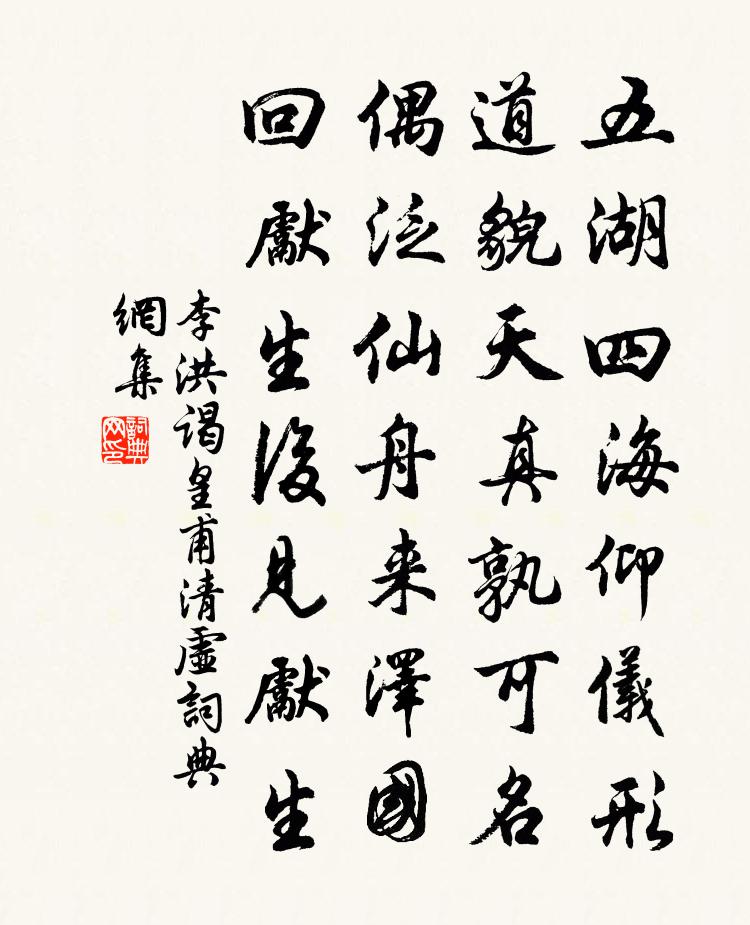 五湖四海仰儀形
道貌天真孰可名
偶泛仙舟来澤國
回獻生後見獻生
李洪謁皇甫清虛詞典
網集
詞典網印